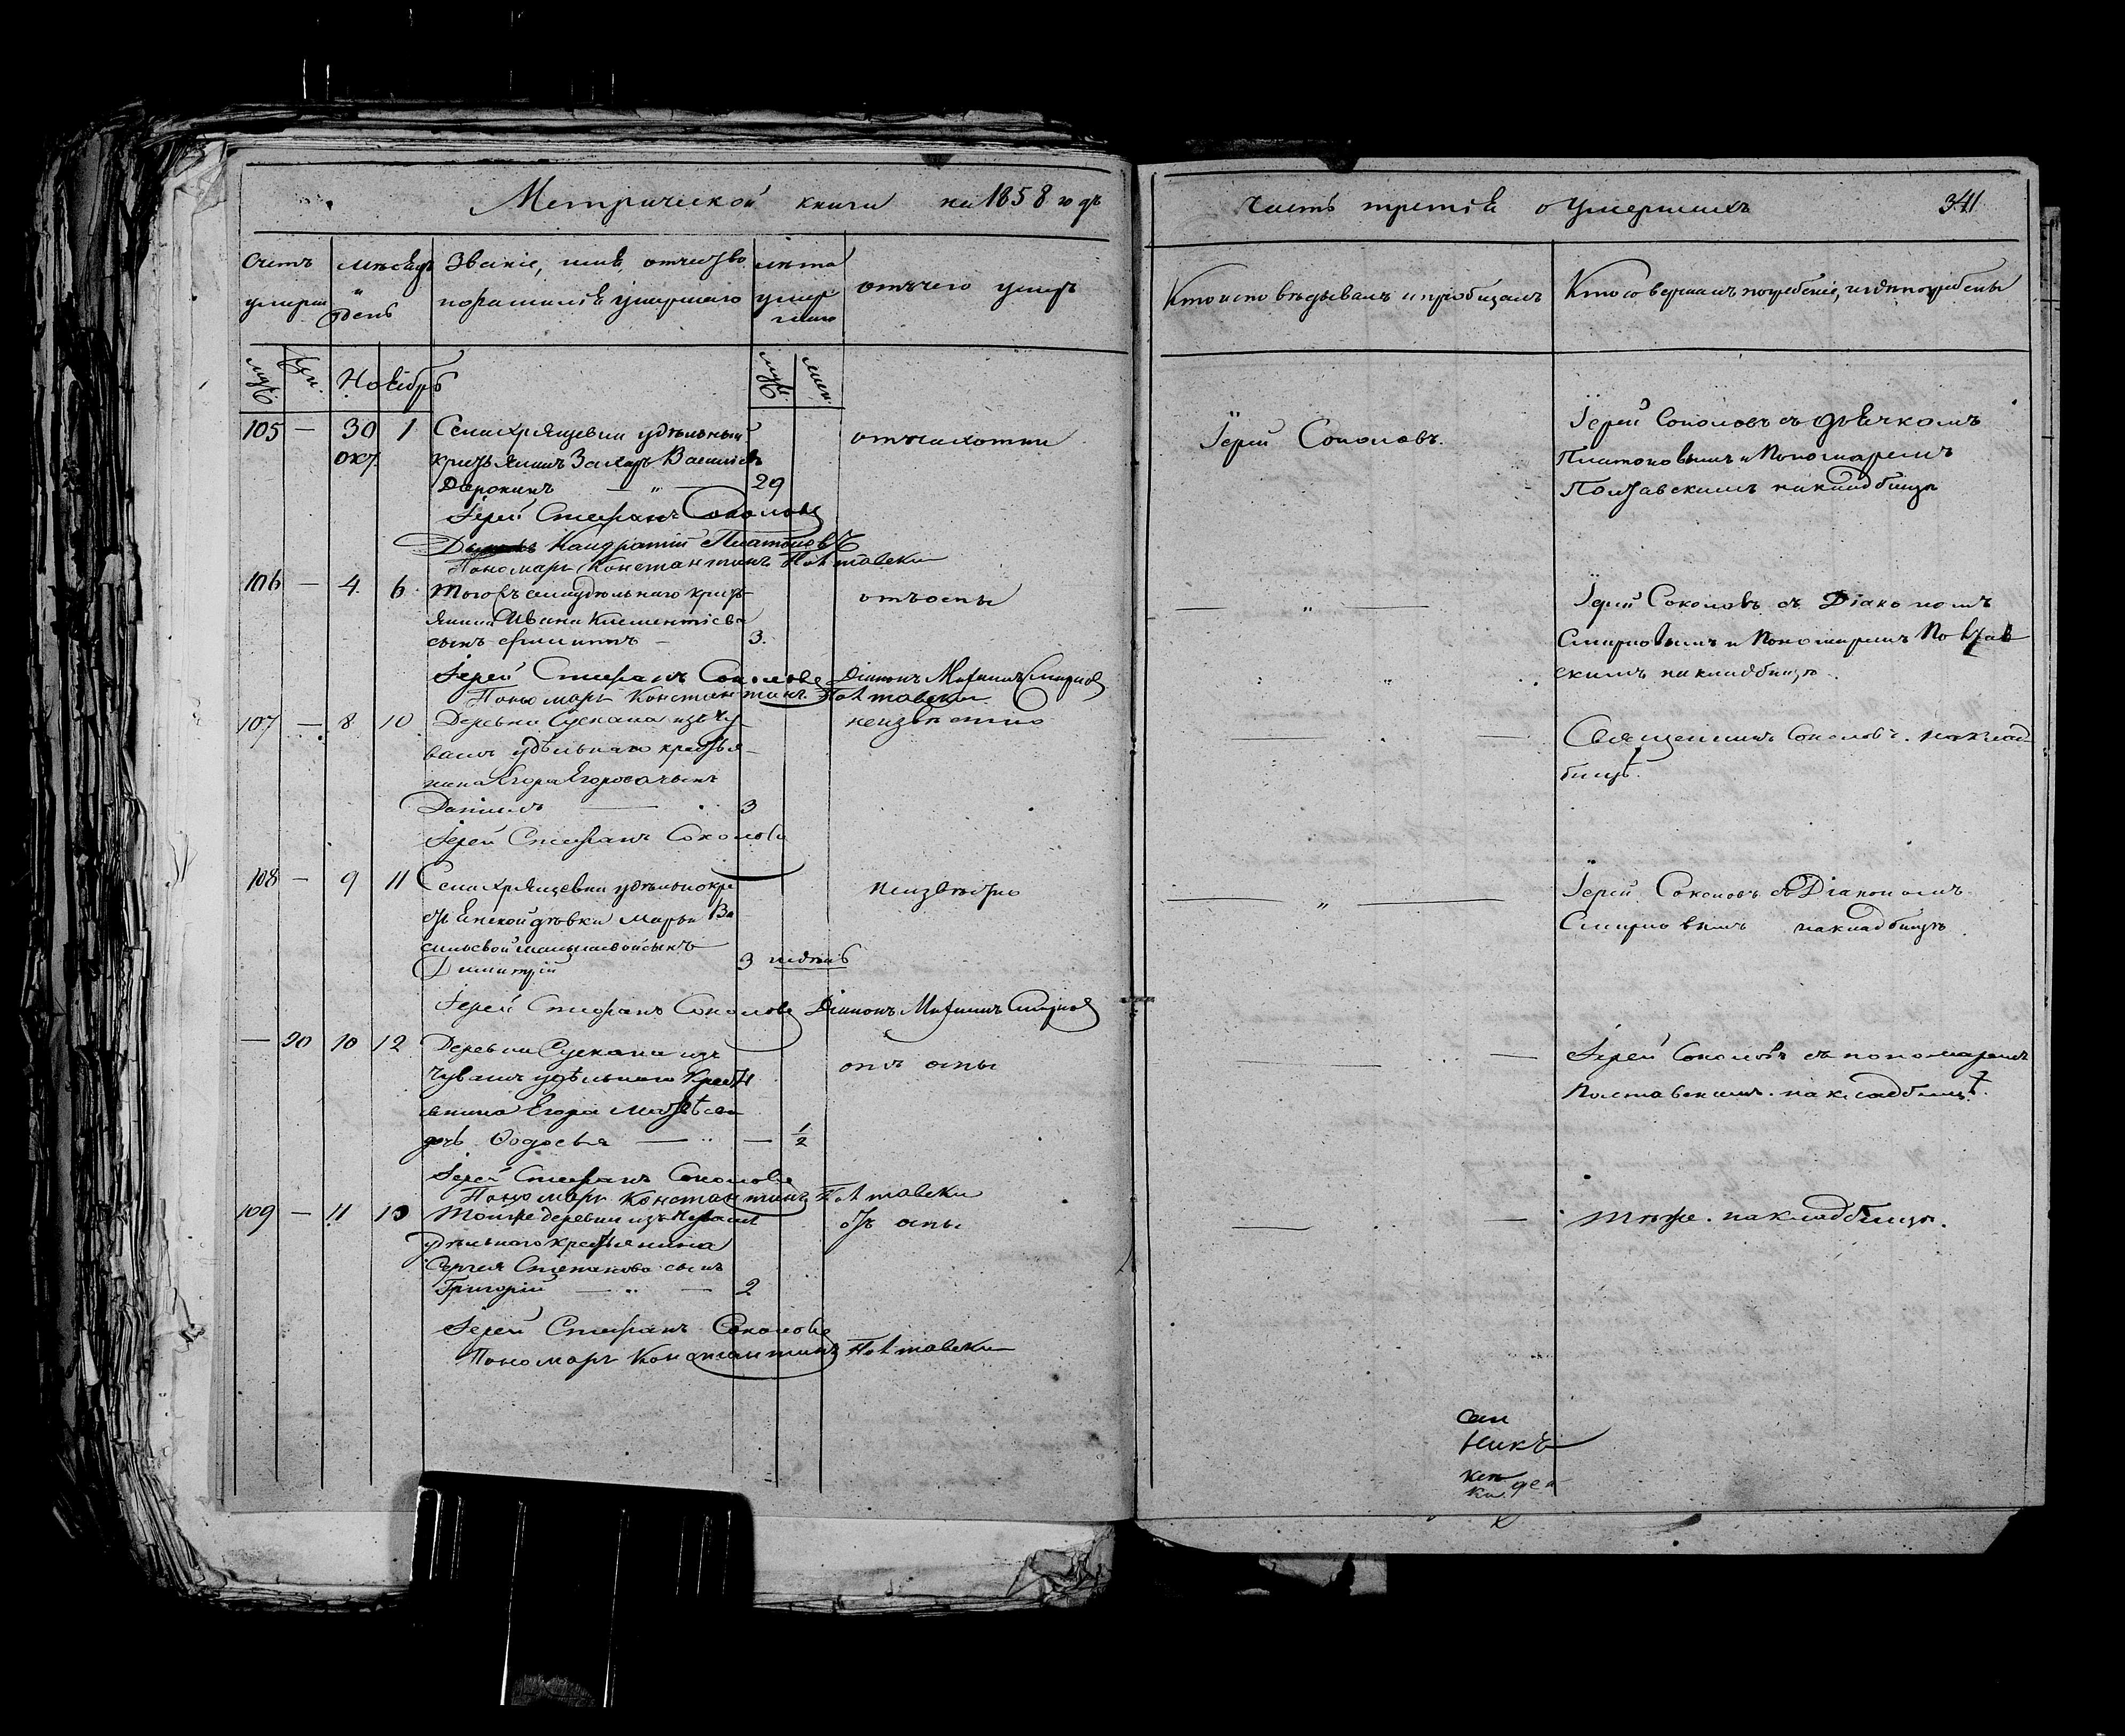 Метрической книги на 1858 годъ
Счетъ умерш
мѣсяцъ и день
Званіе, имя, отчество
и фамилія умершаго
лѣта умершаго
отъ чего умеръ
муж. жен.
Ноябрь
муж. жен.
105 — 30 1 Села Хрящевки удѣльный
окт. крестьянинъ Захаръ Васильевъ
29
отъ чахотки
Іерей Стефанъ Соколовъ
Кондратій Платоновъ
Пономарь Константинъ Полтавски
106 — 4 6 Того же села удѣльнаго крест-
янина Ивана Климентіева
сынъ Филиппъ — 3.
отъ оспы
Іерей Стефанъ Соколовъ Діаконъ Смирновъ
Пономарь Константинъ Полтавски
107 — 8 10 Деревни Сускана изъ чу-
вашъ удѣльнаго крестья-
нина Егора Егорова сынъ
Даніилъ — 3
неизвѣстно
Іерей Стефанъ Соколовъ
108 — 9 11 Села Хрящевки удѣльнокре
стьянской дѣвки Марьи Ва
сильевой сынъ
Димитрій 3 недѣль
неизвѣстно
Іерей Стефанъ Соколовъ Діаконъ Смирновъ
— 90 10 12 Деревни Сускана изъ
чувашъ удѣльнаго крестья
янина Егора Матвѣева
дочь Ѳодосья — „ — 1/2
отъ оспы
Іерей Стефанъ Соколовъ
Пономарь Константинъ Полтавски
109 — 11 13 Той же деревни изъ чувашъ
удѣльнаго крестьянина
Сергея Степанова сынъ
Григорій — „ — 2
отъ оспы
Іерей Стефанъ Соколовъ
Пономарь Константинъ Полтавски
часть третія о умершихъ 341
Кто исповѣдывалъ и пріобщалъ
Кто совершалъ погребеніе, и гдѣ погребены
Іерей Соколовъ.
Іерей Соколовъ съ дьячкомъ
Платоновымъ и Пономаремъ
Полтавскимъ на кладбищѣ
— „ —
Іерей Соколовъ съ Діакономъ
Смирновымъ и Пономаремъ Полтав
скимъ на кладбищѣ.
Священникъ Соколовъ. на клад-
бищѣ.
— „ —
Іерей Соколовъ съ Діакономъ
Смирновымъ на кладбищѣ.
Іерей Соколовъ съ пономаремъ
Полтавскимъ. на кладбищѣ.
Тѣже. на кладбищѣ.